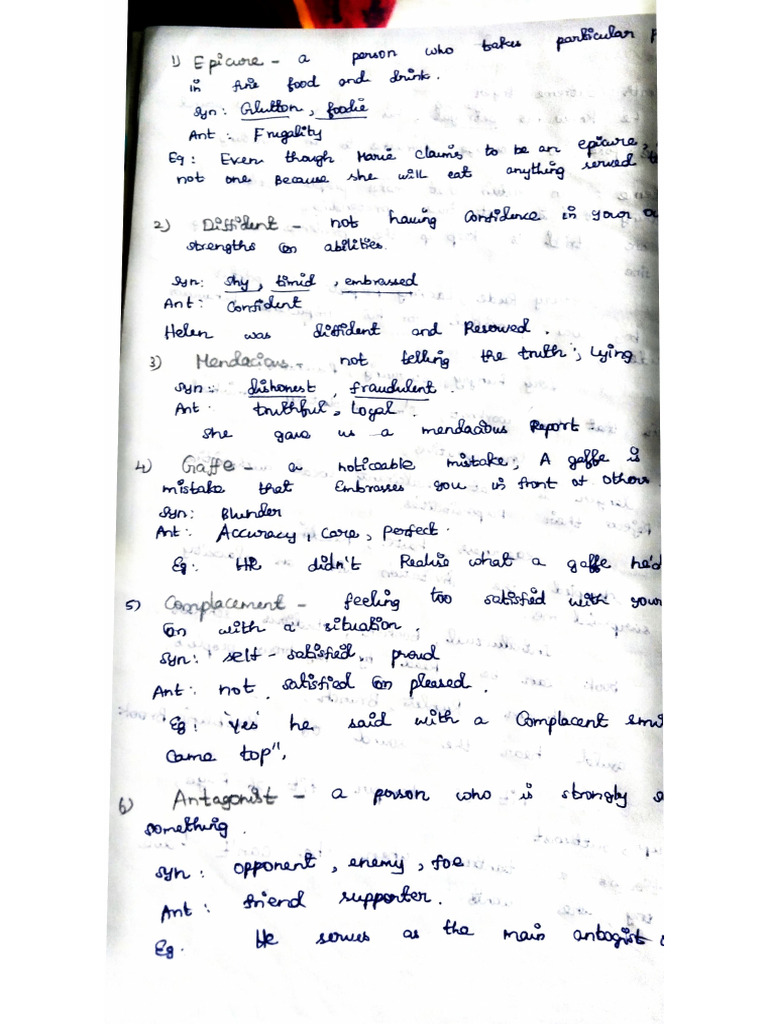 1) Epicure - a person who takes particular
in fine food and drink.
Syn: Glutton, foodie
Ant: Frugality
Eg: Even though Marie claims to be an epicure,
not one Because she will eat anything served
2) Diffident - not having Confidence in your
strengths or abilities.
Syn: shy, timid, embrassed
Ant: Confident
Helen was diffident and Reserved.
3) Mendacious - not telling the truth; lying
Syn: dishonest, fraudulent.
Ant: truthful, Loyal.
She gave us a mendacious Report.
4) Gaffe - a noticeable mistake; A gaffe is
mistake that Embrasses you in front of others
Syn: Blunder
Ant: Accuracy, care, perfect.
Eg: He didn't Realise what a gaffe he'd
5) Complacement - feeling too satisfied with your
or with a situation.
Syn: self-satisfied, proud
Ant: not satisfied or pleased.
Eg: 'Yes' he said with a Complacent
came top".
6) Antagonist - a person who is strongly
something.
Syn: opponent, enemy, foe
Ant: friend supporter.
Eg. He serves as the main antogist